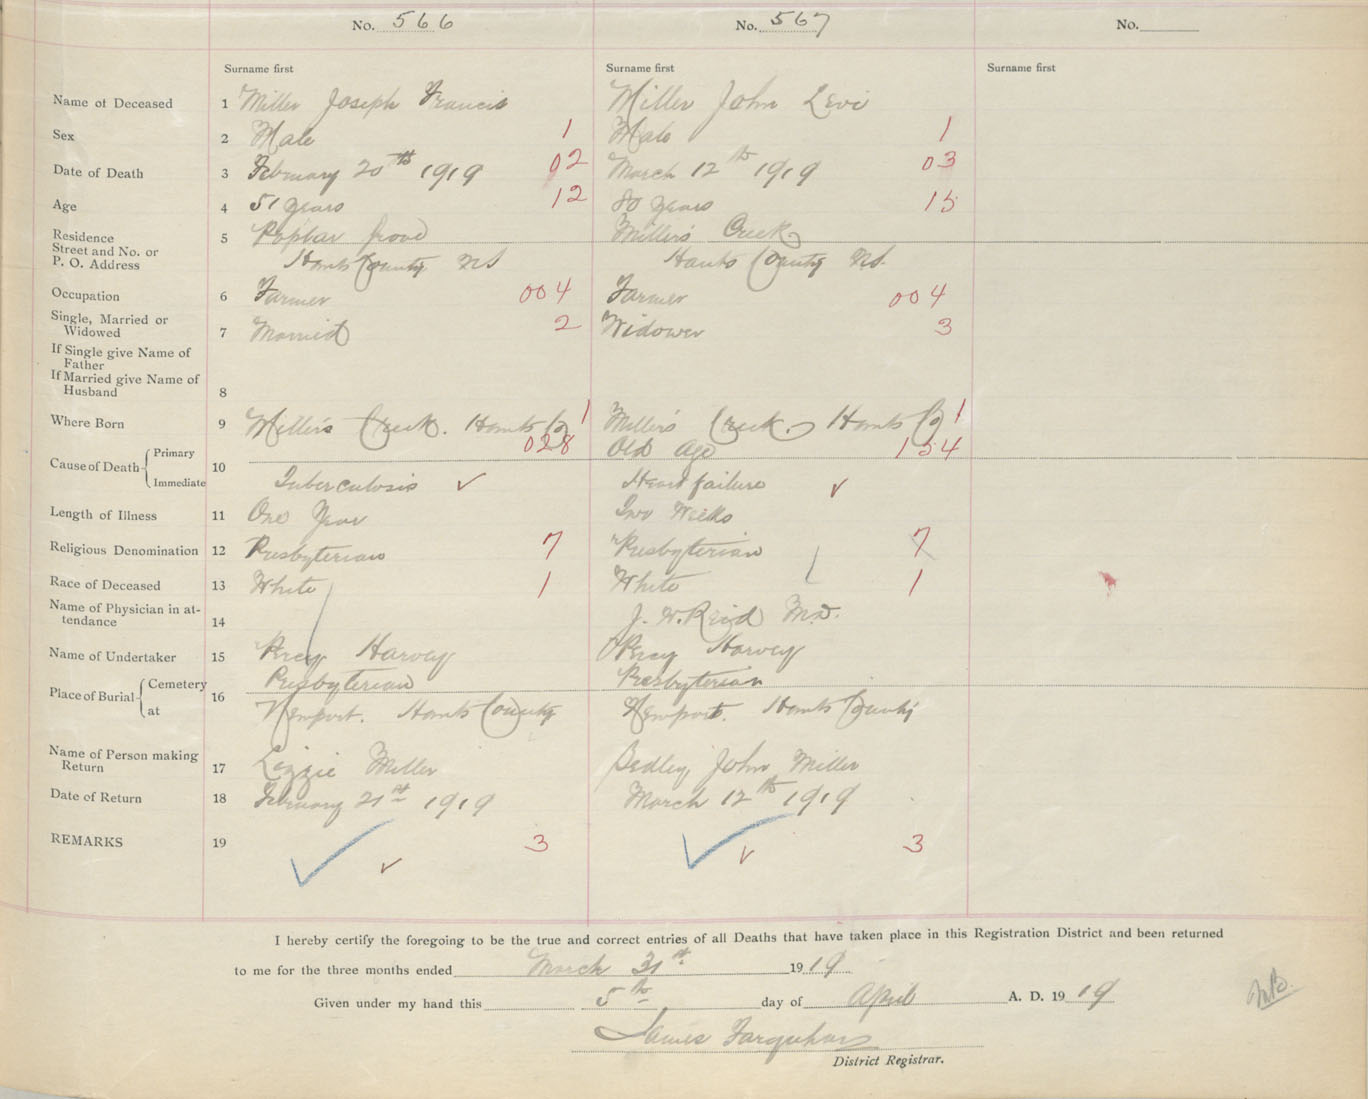 No. 566 No. 567 No.
Surname first Surname first Surname first
Name of Deceased 1 Miller Joseph Francis Miller John Levi
Sex 2 Male 1 Male 1
Date of Death 3 February 20th 1919 02 March 12th 1919 03
Age 4 51 years 12 80 years 15
Residence 5 Poplar Grove Miller's Creek
Street and No. or
P. O. Address Hants County NS Hants County NS.
Occupation 6 Farmer 004 Farmer 004
Single, Married or
Widowed 7 Married 2 Widower 3
If Single give Name of
Father
If Married give Name of
Husband 8
Where Born 9 Miller's Creek. Hants Co 1 Miller's Creek. Hants Co 1
Cause of Death Primary 028 Old Age 154
10
Immediate Tuberculosis ✓ Heart failure ✓
Length of Illness 11 One Year Two Weeks
Religious Denomination 12 Presbyterian 7 Presbyterian 7
Race of Deceased 13 White 1 White 1
Name of Physician in at-
tendance 14 J. W. Reid M.D.
Name of Undertaker 15 Percy Harvey Percy Harvey
Place of Burial Cemetery 16 Presbyterian Presbyterian
at Newport. Hants County Newport. Hants County
Name of Person making
Return 17 Lizzie Miller John Miller
Date of Return 18 February 21st 1919 March 12th 1919
REMARKS 19 ✓ ✓ 3 ✓ ✓ 3
I hereby certify the foregoing to be the true and correct entries of all Deaths that have taken place in this Registration District and been returned
to me for the three months ended March 31st 1919
Given under my hand this 5th day of April A. D. 1919
James Farquhar
District Registrar.